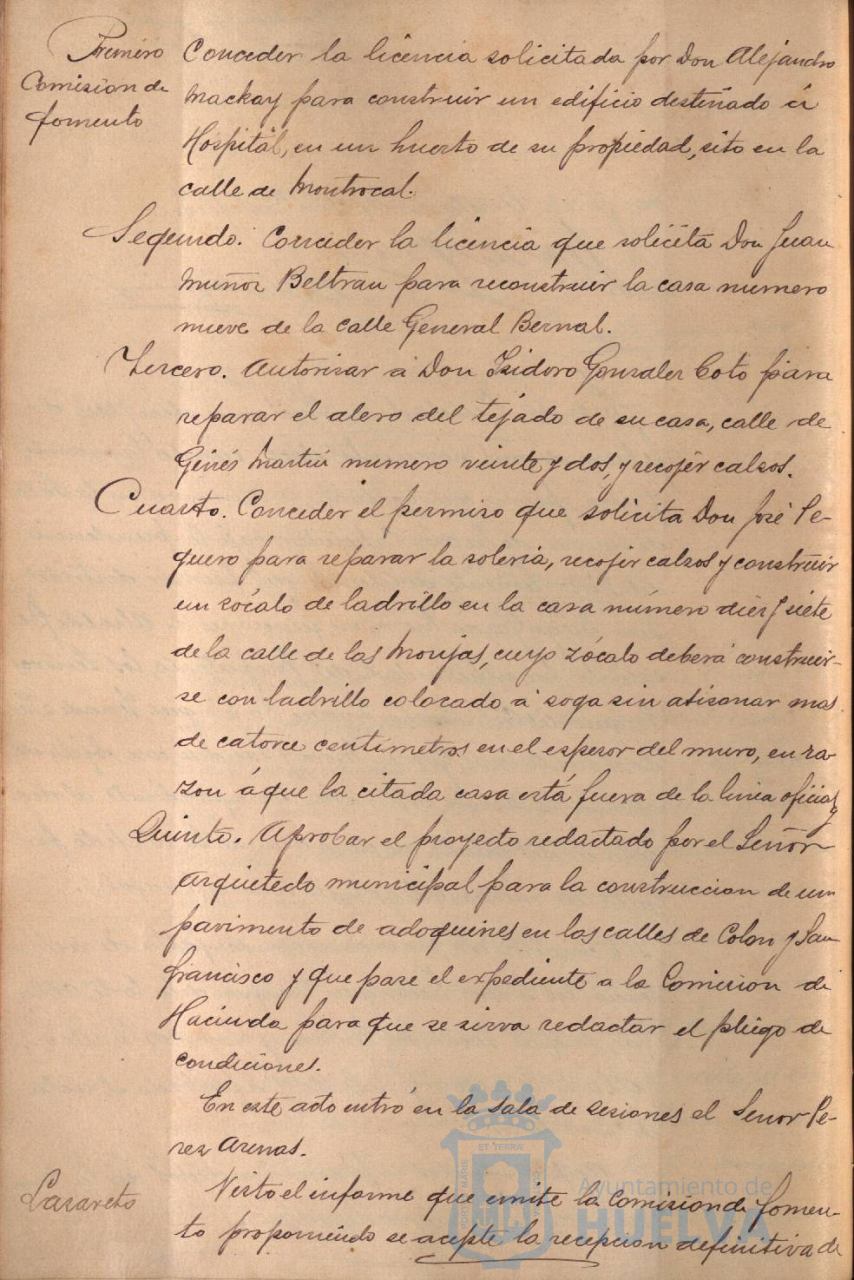 Primero
Comision de
fomento
Conceder la licencia solicitada por Don Alejandro
Mackay para construir un edificio destinado á
Hospital, en un huerto de su propiedad, sito en la
calle de Montrocal.
Segundo. Conceder la licencia que solicita Don Juan
Muñoz Beltran para reconstruir la casa numero
nueve de la calle General Bernal.
Tercero. Autorizar á Don Isidoro Gonzalez Coto para
reparar el alero del tejado de su casa, calle de
Ginés Martín numero veinte y dos, y recojer calsos.
Cuarto. Conceder el permiso que solicita Don José Pe-
quero para reparar la soleria, recojer calsos y construir
un zócalo de ladrillo en la casa número diez y siete
de la calle de las Monjas, cuyo zócalo deberá construir-
se con ladrillo colocado á soga sin atisonar mas
de catorce centimetros en el espesor del muro, en ra-
zon á que la citada casa está fuera de la linea oficial y
Quinto. Aprobar el proyecto redactado por el Señor
Arquitecto municipal para la construccion de un
pavimento de adoquines en las calles de Colon y San
Francisco y que pase el expediente a la Comision de
Hacienda para que se sirva redactar el pliego de
condiciones.
En este acto entró en la sala de sesiones el Señor Pe-
rez Arenas.
Lazareto
Visto el informe que emite la Comision de fomen-
to proponiendo se acepte la recepcion definitiva de
ET TERRAE
Ayuntamiento de
HUELVA